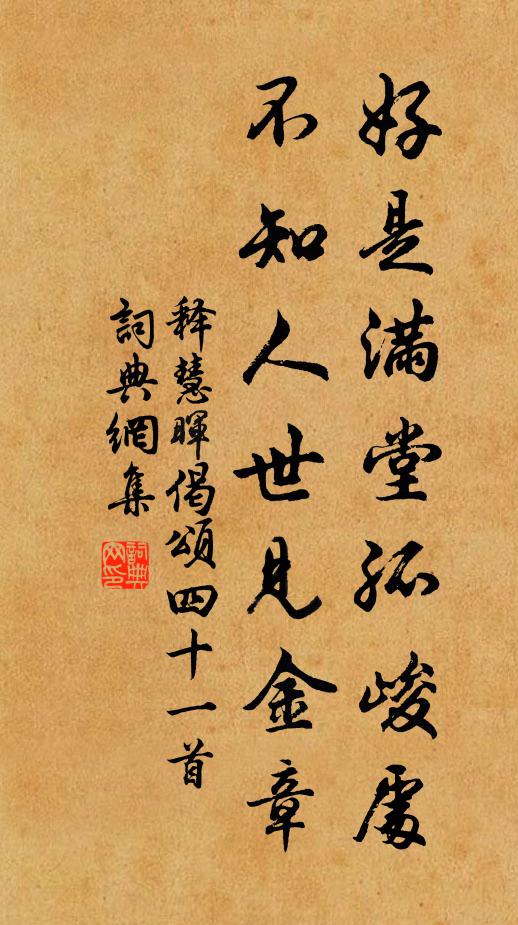 好是滿堂孤峻處
不知人世見金章
释慧暉偈頌四十一首
詞典網集
詞典網印